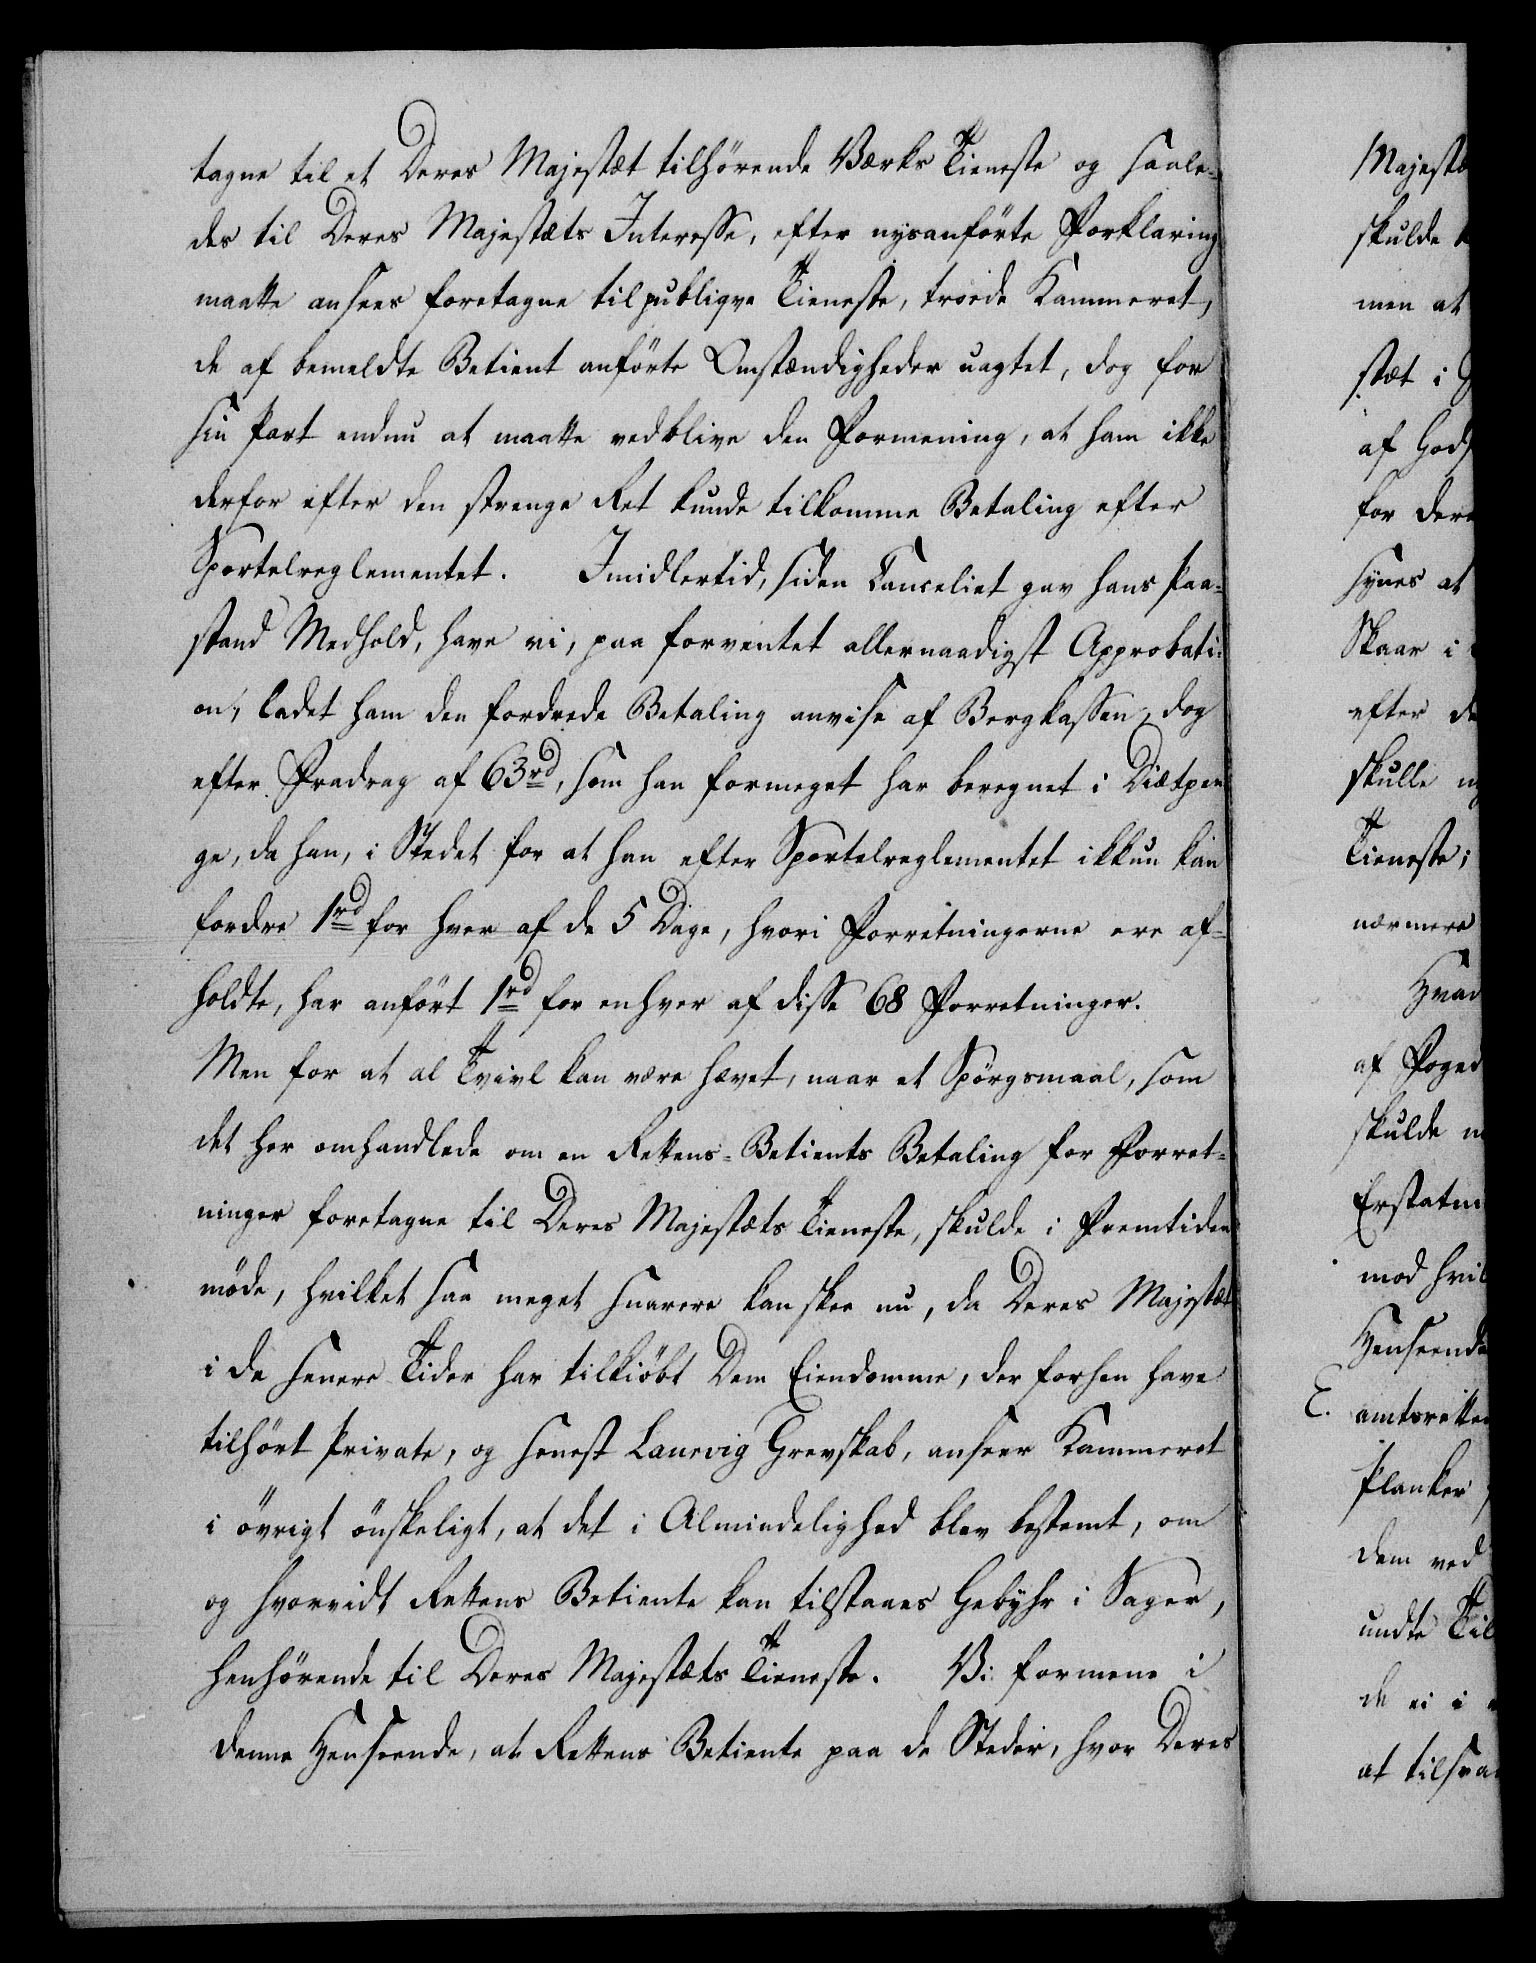 tagne til et Deres Majestæt tilhørende Værks Tieneste og saale-
des til Deres Majestæts Interesse, efter nysanførte Forklaring
maatte ansees foretagne til publiqve Tieneste, troede Kammeret,
de af bemeldte Betient anførte Omstændigheder uagtet, dog for
sin Part endnu at maatte vedblive den Formening, at ham ikke
derfor efter den strenge Ret kunde tilkomme Betaling efter
Sportelreglementet. Imidlertid, siden Canceliet gav hans Paa-
stand Medhold, have vi, paa forventet allernaadigst Approbati-
on, ladet ham den fordrede Betaling anvise af Bergkassen, dog
efter Fradrag af 63rd, som han formeget har beregnet i Diætpen
ge, da han, i Stedet for at han efter Sportelreglementet ikkun kan
fordre 1rd for hver af de 5 Dage, hvori Forretningerne ere af-
holdte, har anført 1rd for enhver af disse 68 Forretninger.
Men for at al Tvivl kan være hævet, naar et Spørgsmaal, som
det her omhandlede om en Rettens-Betients Betaling for Forret-
ninger foretagne til Deres Majestæts Tieneste, skulde i Fremtiden
møde, hvilket saa meget snarere kan skee nu, da Deres Majestæt
i de senere Tider har tilkiøbt Dem Eiendomme, der forhen have
tilhørt Private, og senest Laurvig Grevskab, anseer Kammeret
i øvrigt ønskeligt, at det i Almindelighed blev bestemt, om
og hvorvidt Rettens Betiente kan tilstaaes Gebyhr i Sager,
henhørende til Deres Majestæts Tieneste. Vi formene i
denne Henseende, at Rettens Betiente paa de Steder, hvor Deres
Majestæ
skulde
men at
stæt i
af Gods
for Dere
synes at
Skaar i
efter de
skulle
Tieneste;
nærmere
Hvad
af Foged
skulde
Erstatni
mod hvil
Henseende
E. amtsrette
Planker
dem ved
undte Til
de ei i
at tilsva